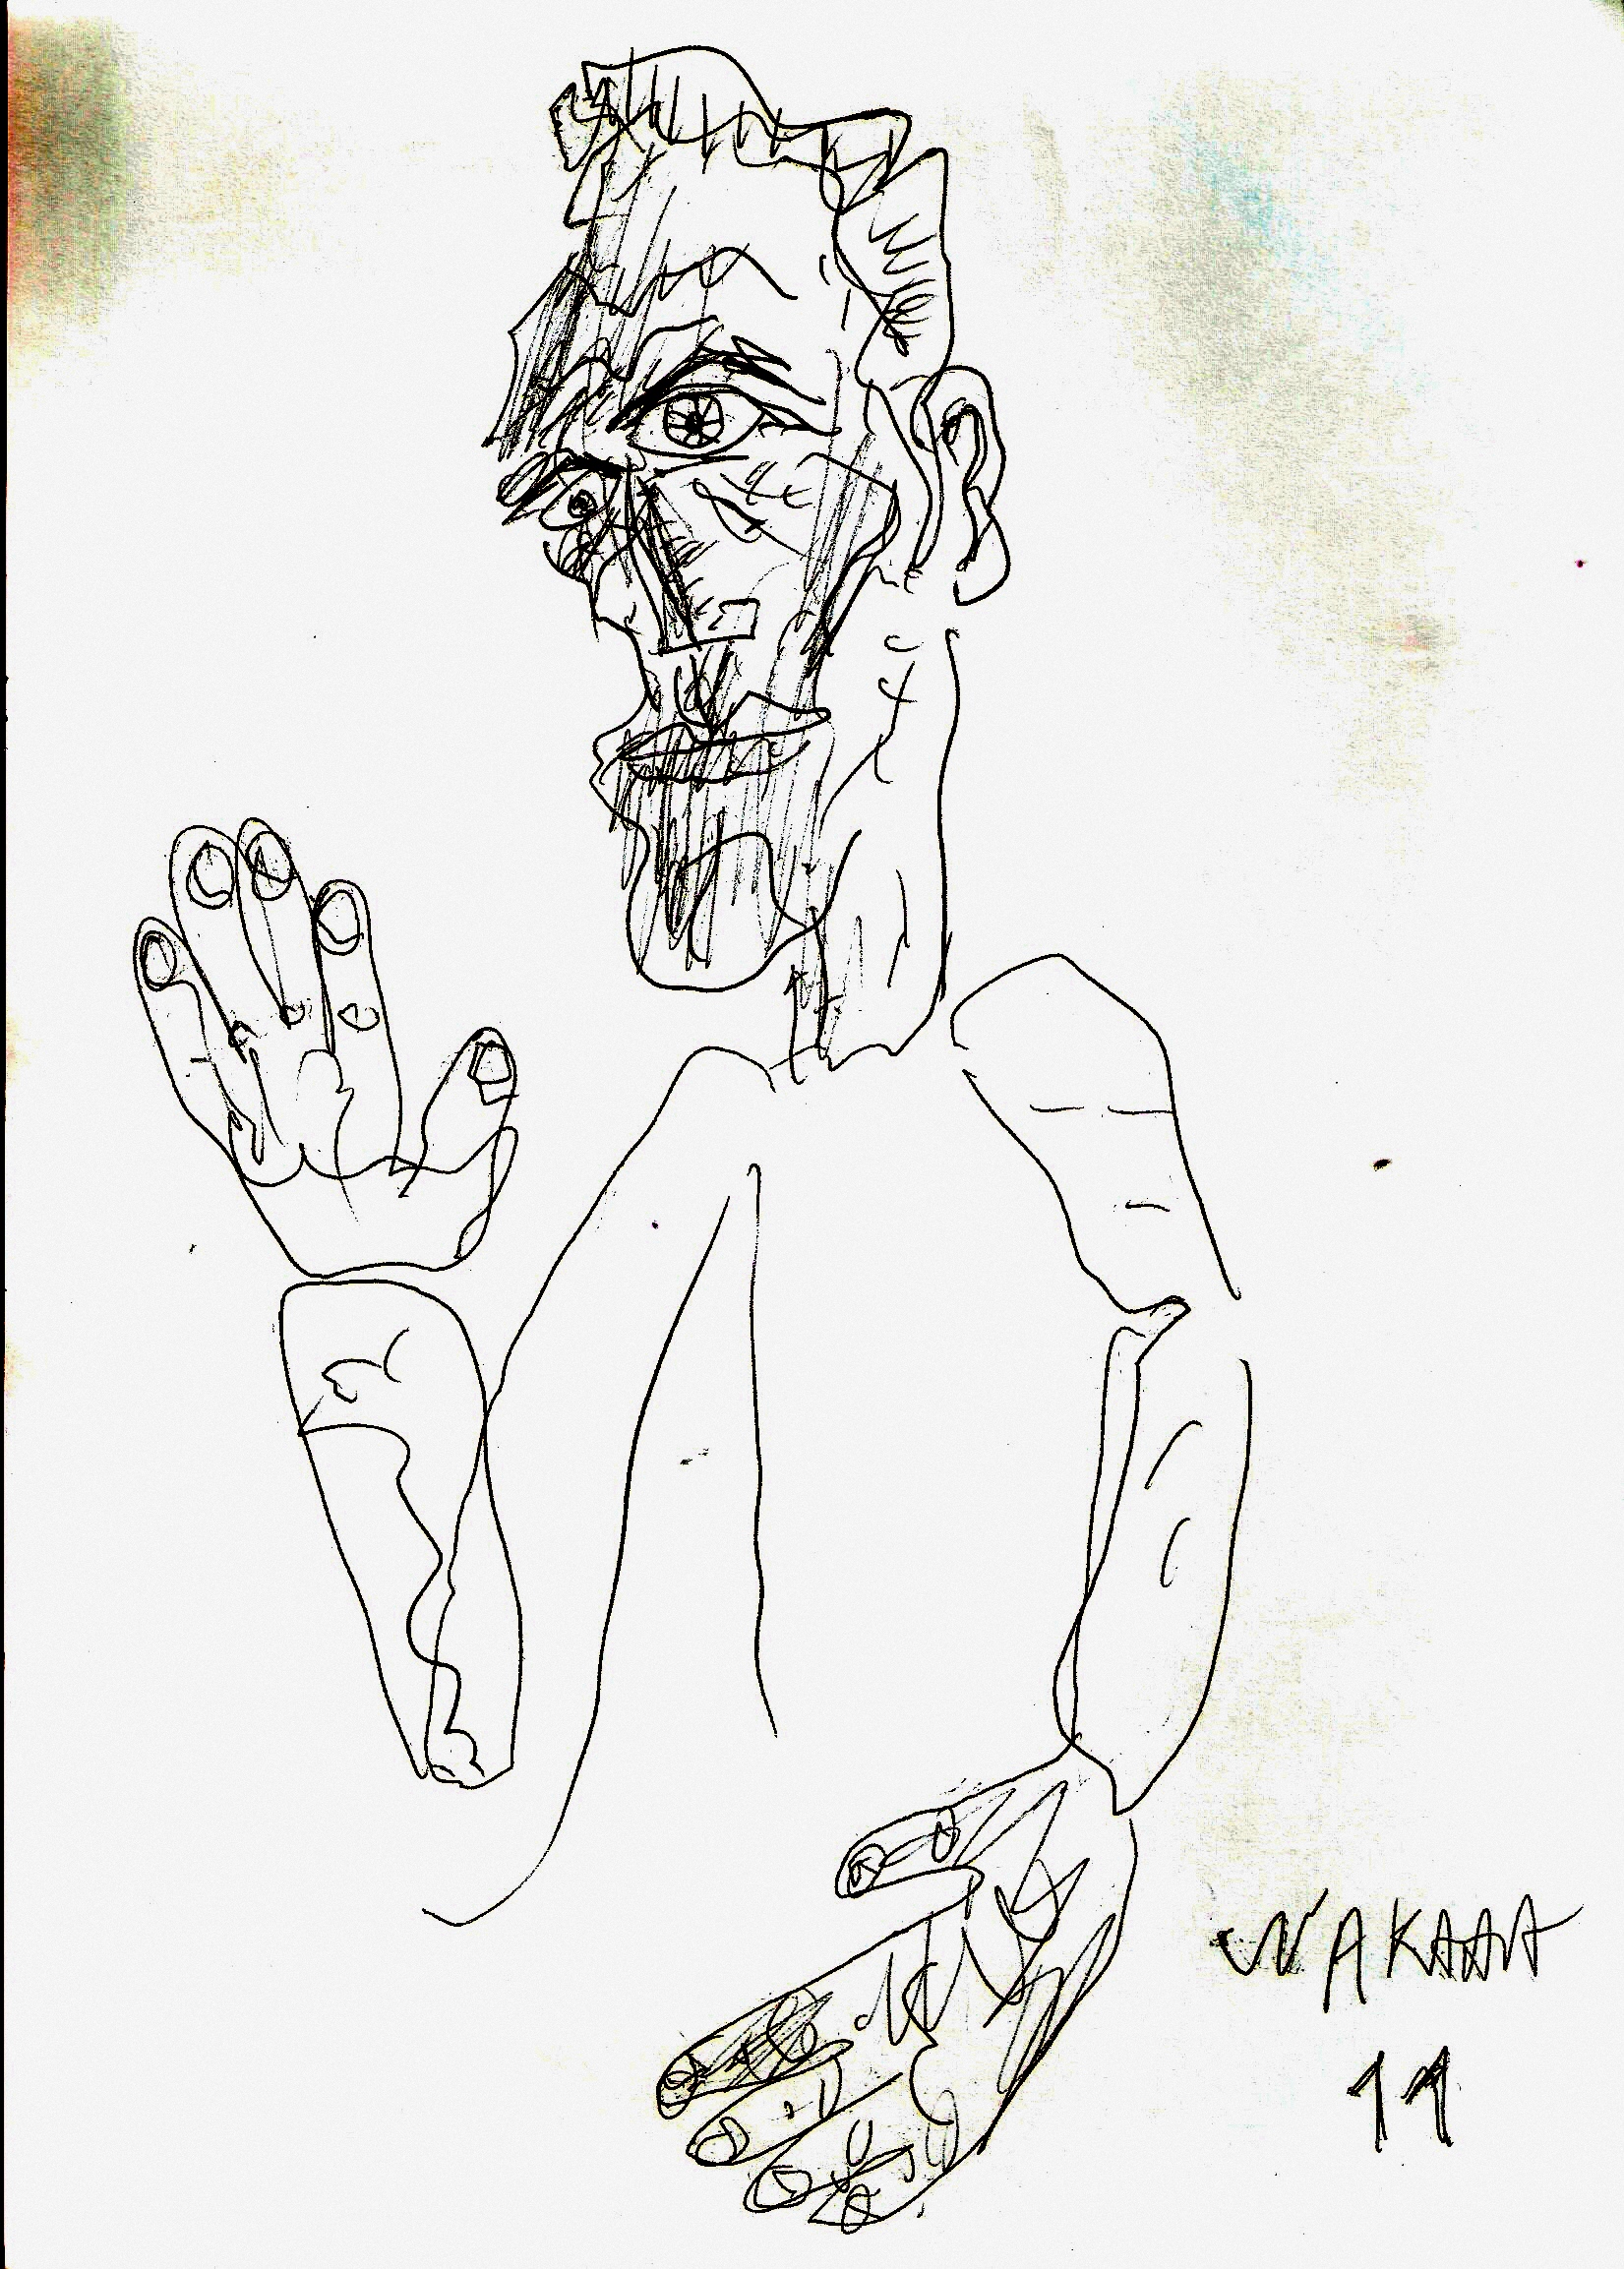 WAKAAA
11